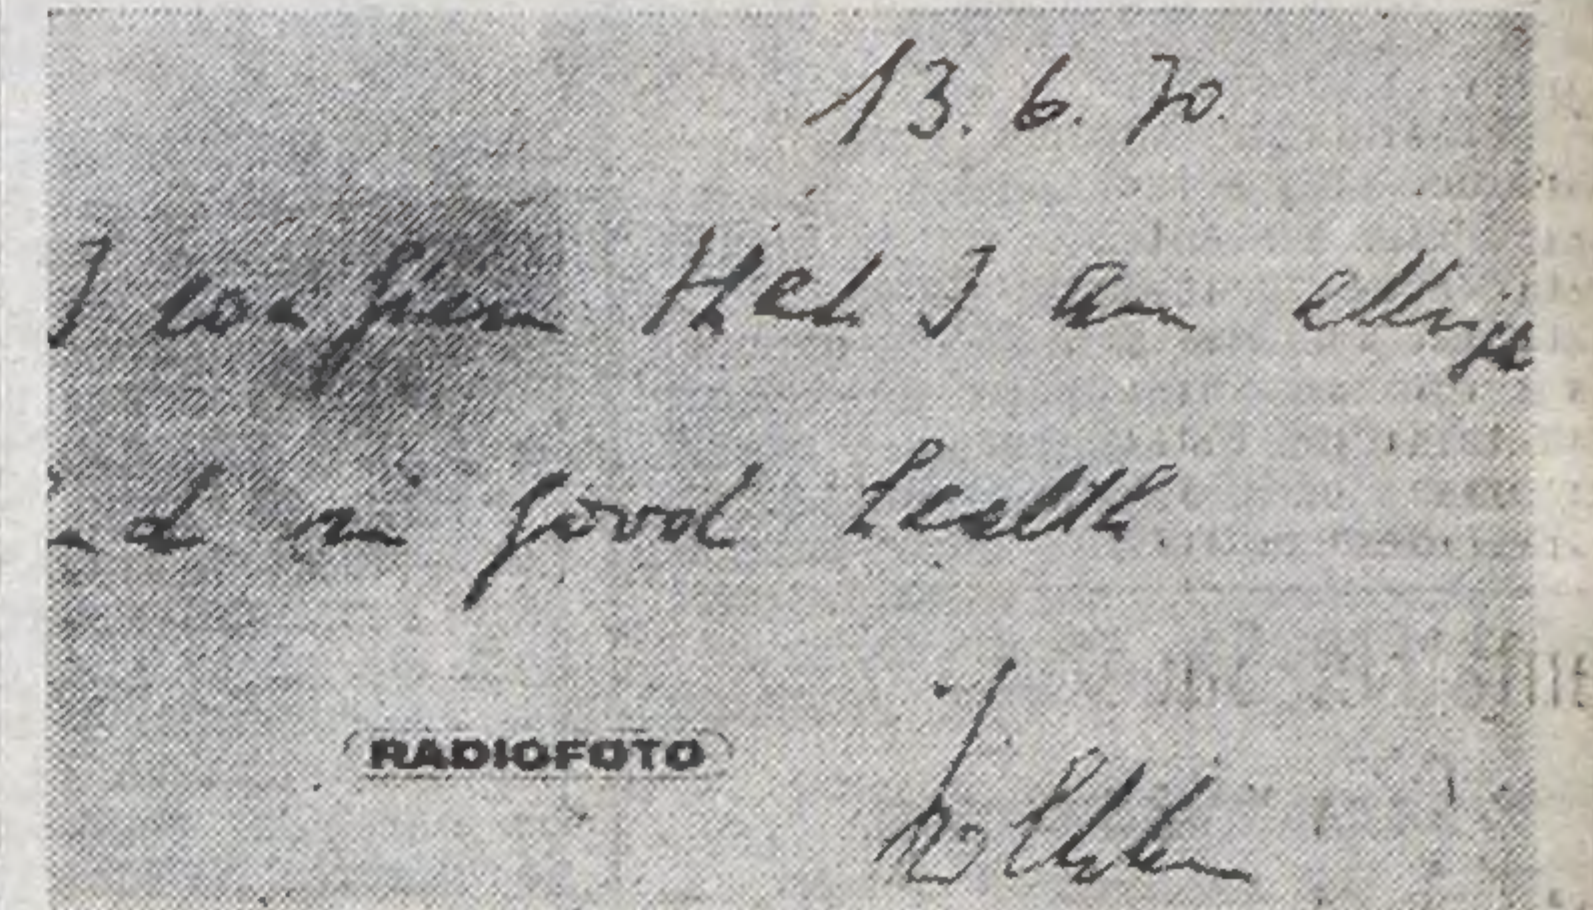 13.6.70.
I confirm that I am allright
and in good health
RADIOFOTO